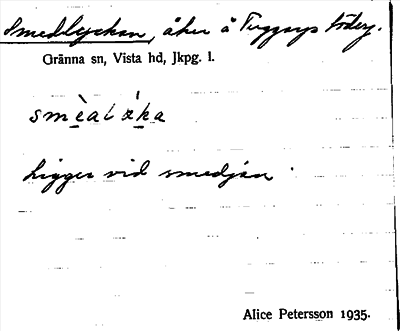 Smedlyckan, åker å Tuggarps söderg.
Gränna sn, Vista hd, Jkpg. l.
Ligger vid smedjan
Alice Petersson 1935.